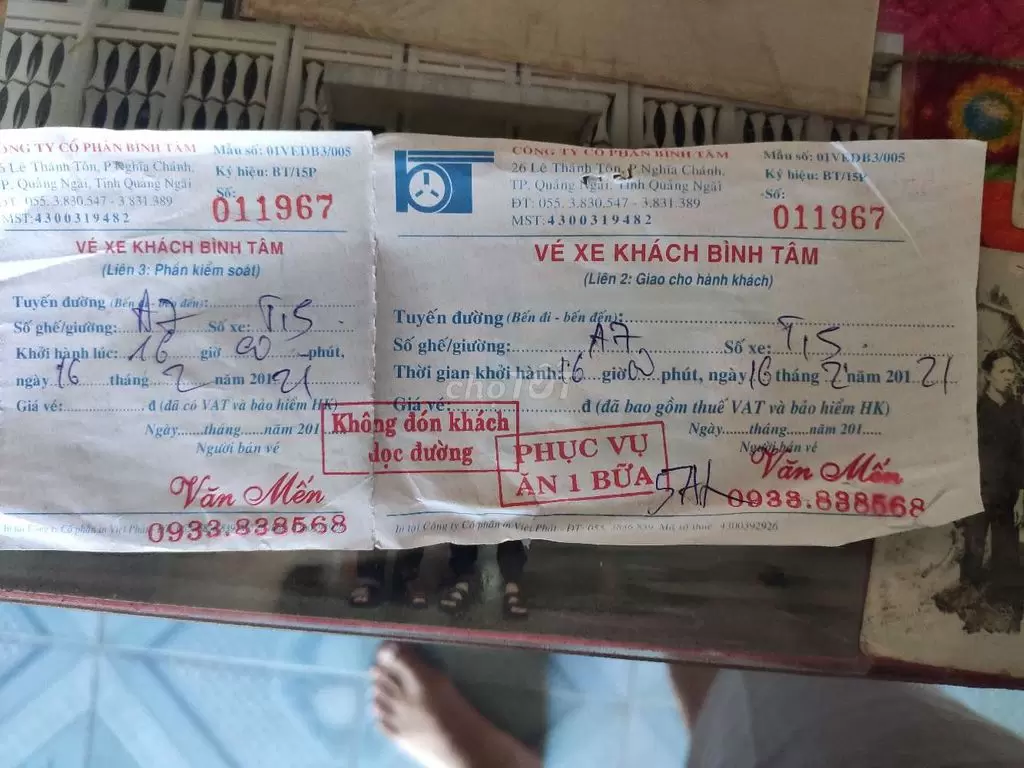 CÔNG TY CỔ PHẦN BÌNH TÂM
6 Lê Thánh Tôn, P.Nghĩa Chánh,
TP. Quảng Ngãi, Tỉnh Quảng Ngãi
ĐT: 055. 3.830.547 - 3.831.389
MST: 4300319482
Mẫu số: 01VEDB3/005
Ký hiệu: BT/15P
Số: 011967
VÉ XE KHÁCH BÌNH TÂM
(Liên 3: Phần kiểm soát)
Tuyến đường (Bến đi - bến đến):
Số ghế/giường: A7 Số xe: T15
Khởi hành lúc: 16 giờ 00 phút,
ngày 16 tháng 2 năm 201 21
Giá vé: đ (đã có VAT và bảo hiểm HK)
Ngày......tháng......năm 201
Người bán vé
Văn Mến
0933.838568
CÔNG TY CỔ PHẦN BÌNH TÂM
26 Lê Thánh Tôn, P.Nghĩa Chánh,
TP. Quảng Ngãi, Tỉnh Quảng Ngãi
ĐT: 055. 3.830.547 - 3.831.389
MST: 4300319482
Mẫu số: 01VEDB3/005
Ký hiệu: BT/15P
Số: 011967
VÉ XE KHÁCH BÌNH TÂM
(Liên 2: Giao cho hành khách)
Tuyến đường (Bến đi - bến đến):
Số ghế/giường: A7 Số xe: T15
Thời gian khởi hành: 16 giờ 00 phút, ngày 16 tháng 2 năm 201 21
Giá vé: đ (đã bao gồm thuế VAT và bảo hiểm HK)
Ngày......tháng......năm 201
Người bán vé
Không đón khách
dọc đường
PHỤC VỤ
ĂN 1 BỮA
Văn Mến
0933.838568
In tại Công ty Cổ phần in Việt Phát
chợ TỐT